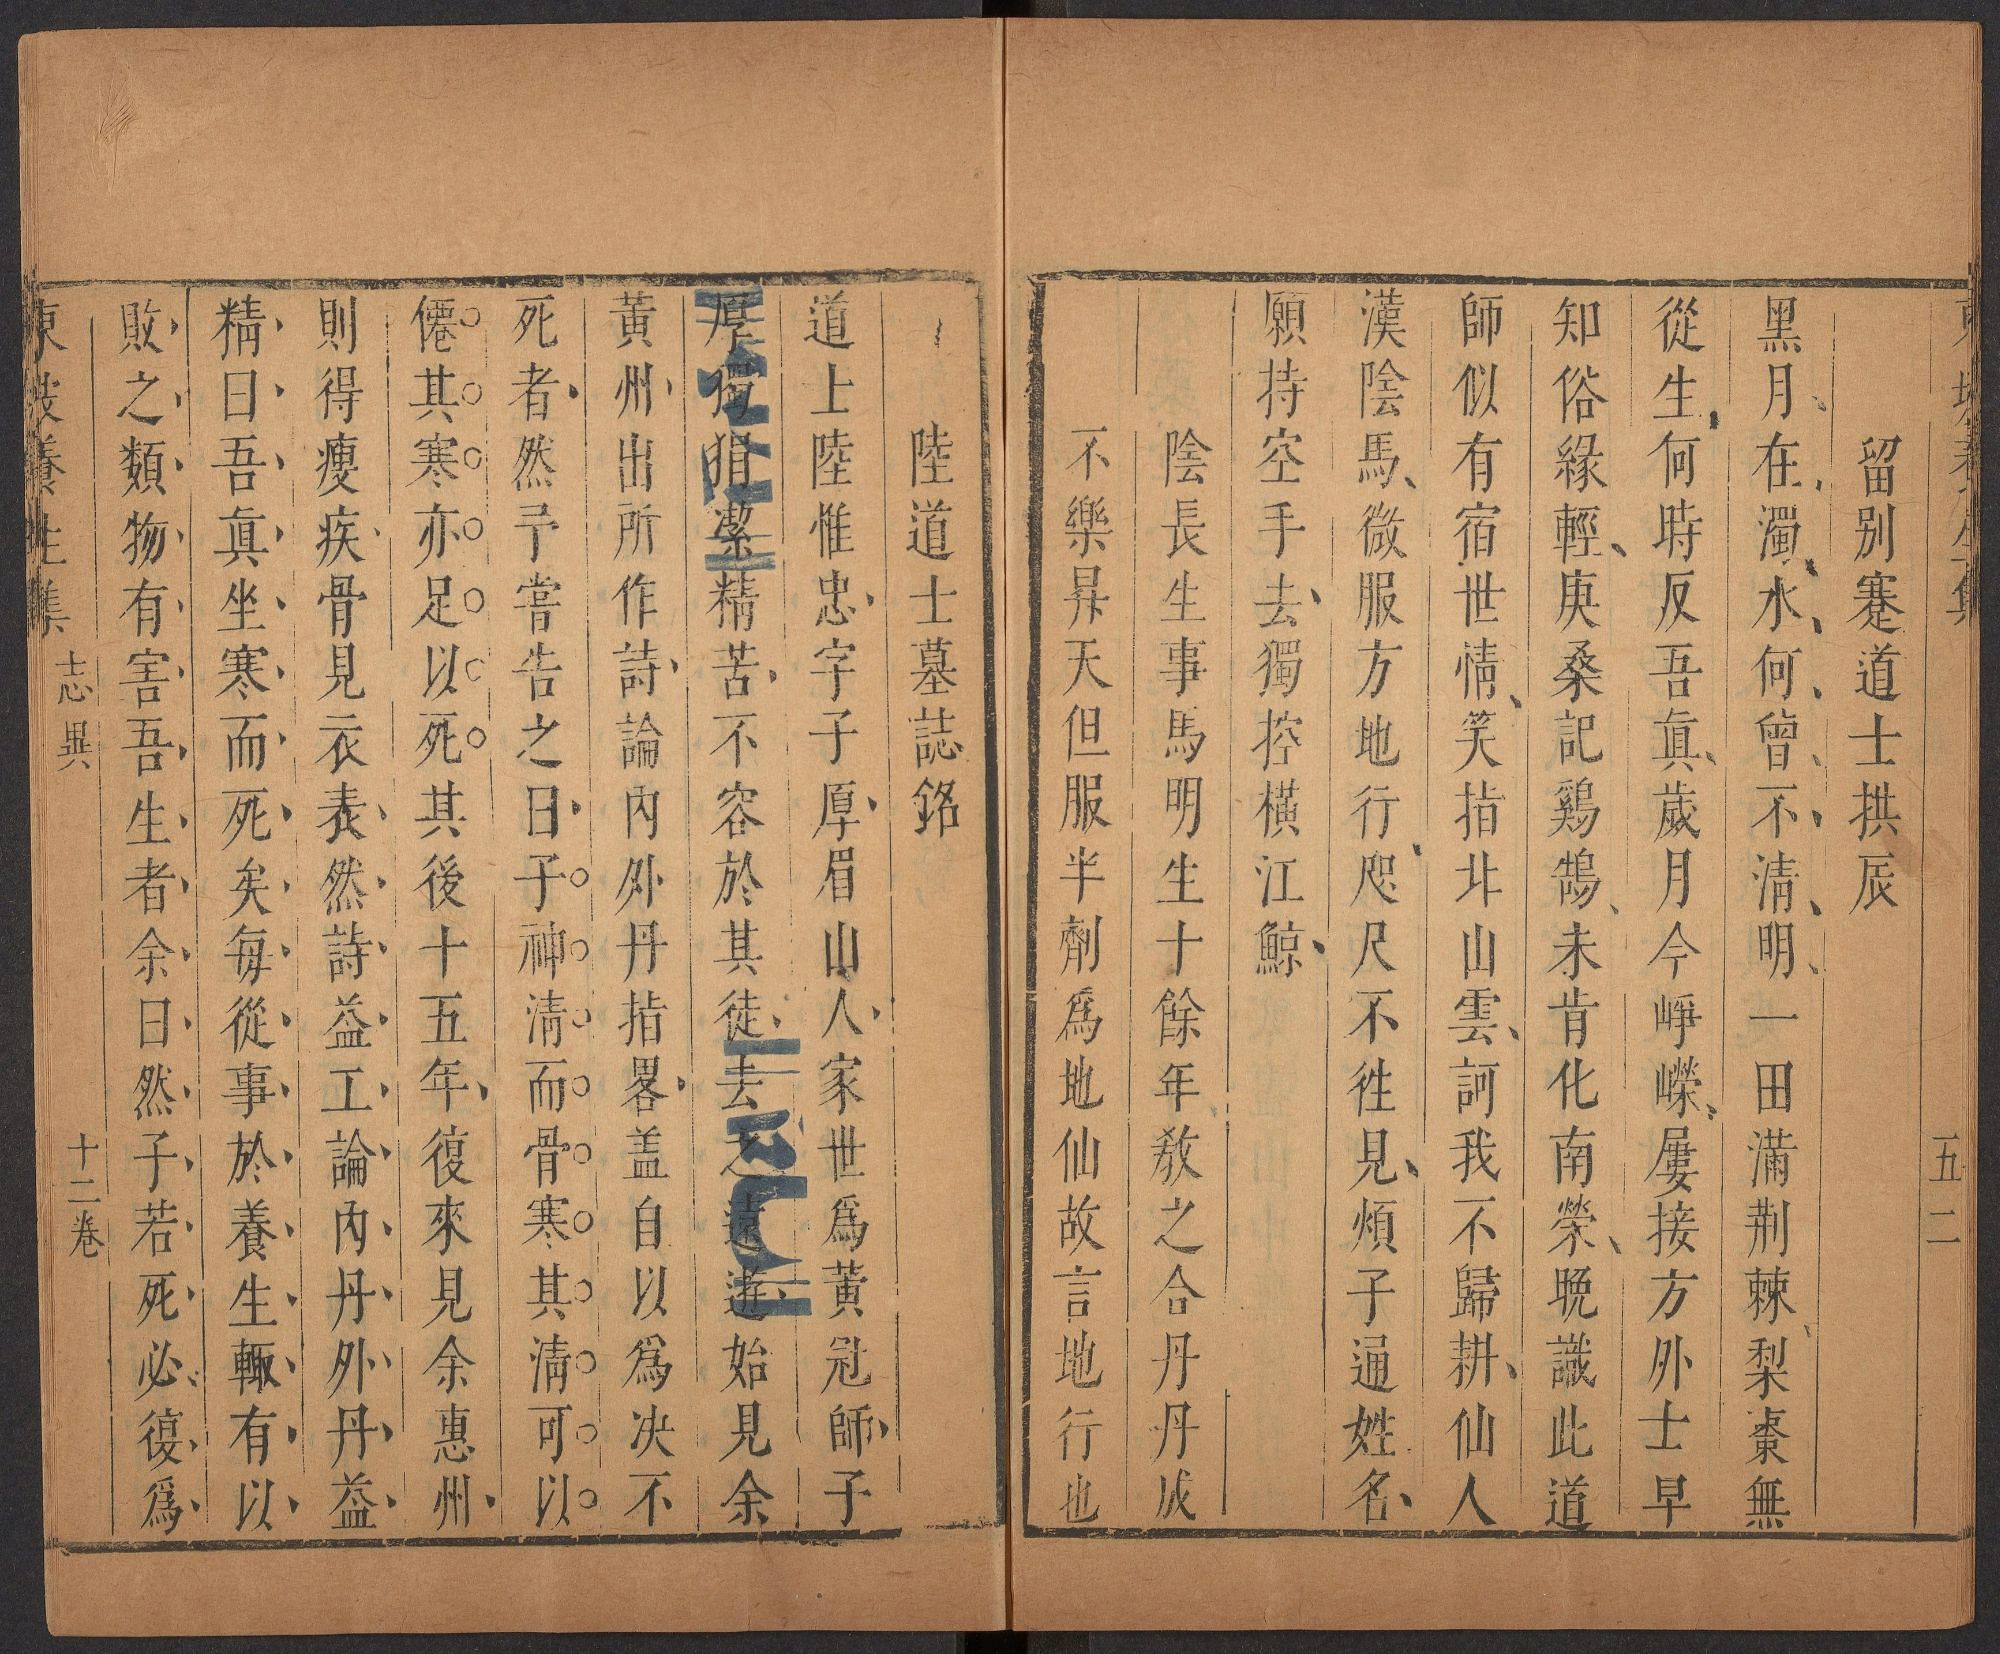 東坡養生集
五二
留別蹇道士拱辰
黑月在濁水何曾不清明一田滿荆棘梨棗無
從生何時反吾眞歲月今崢嶸屢接方外士早
知俗緣輕庚桑記鷄鵠未肯化南榮晚識此道
師似有宿世情笑指北山雲訶我不歸耕仙人
漢陰馬微服方地行咫尺不徃見煩子通姓名
願持空手去獨控橫江鯨
陰長生事馬明生十餘年敎之合丹丹成
不樂昇天但服半劑爲地仙故言地行也
陸道士墓誌銘
道士陸惟忠字子厚眉山人家世爲黃冠師子
厚獨狷潔精苦不容於其徒去之遠遊始見余
黃州出所作詩論內外丹指畧盖自以爲决不
死者然予嘗告之曰子神清而骨寒其清可以
僊其寒亦足以死其後十五年復來見余惠州
則得瘦疾骨見衣表然詩益工論內丹外丹益
精曰吾眞坐寒而死矣每從事於養生輙有以
敗之類物有害吾生者余曰然子若死必復爲
東坡養生集
志異
十二卷